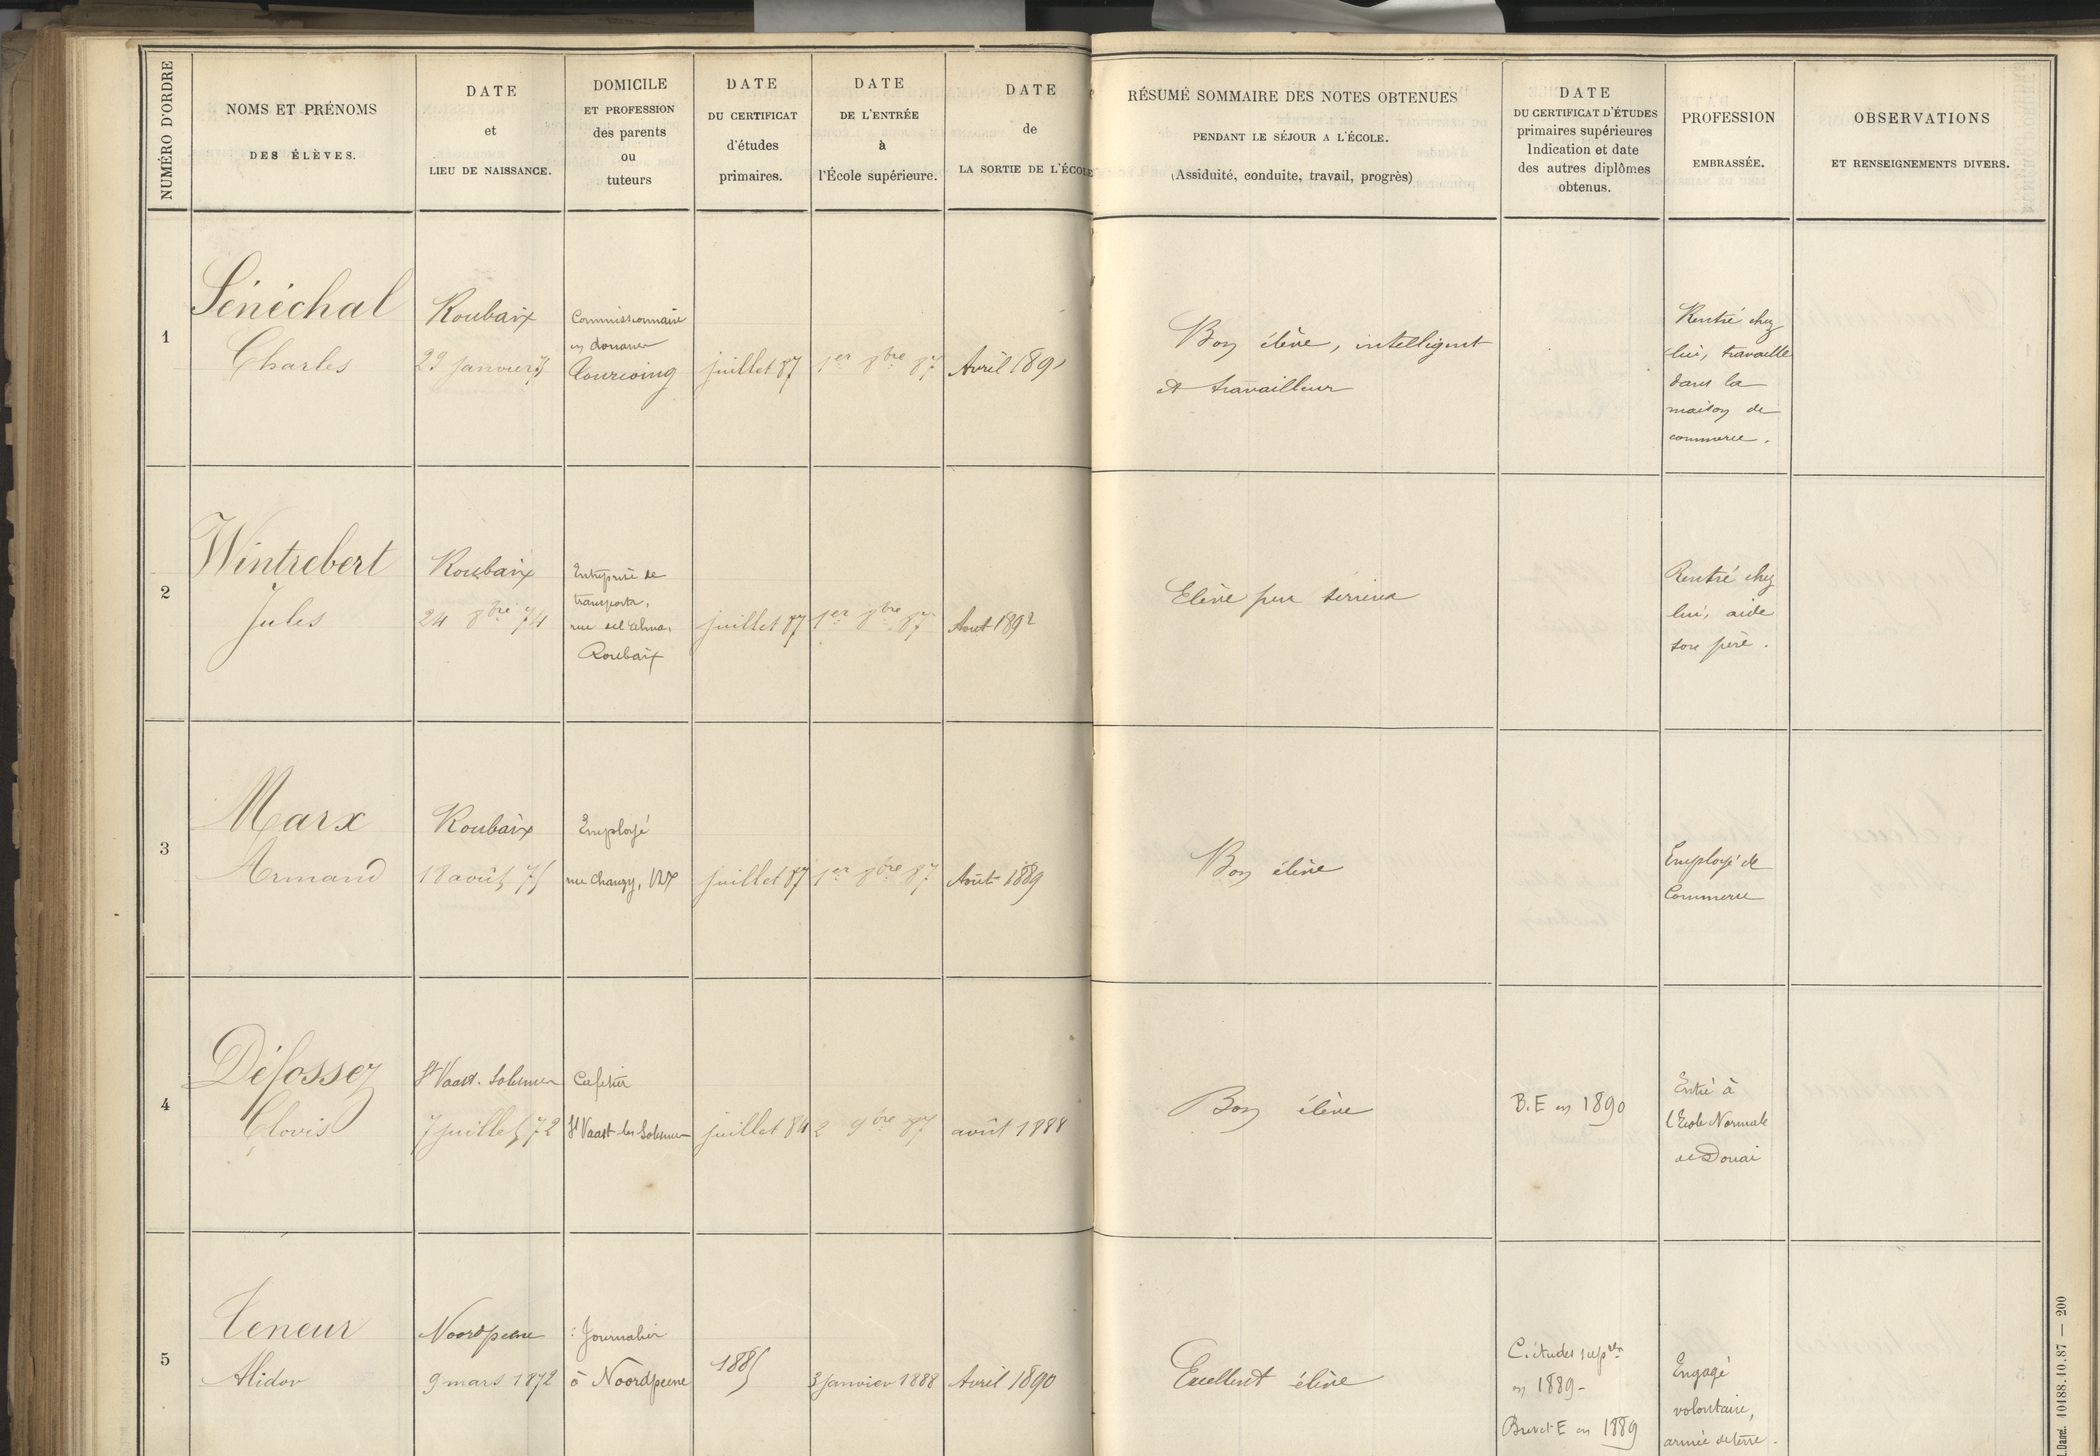 NUMÉRO D'ORDRE
NOMS ET PRÉNOMS
DES ÉLÈVES.
DATE
et
LIEU DE NAISSANCE.
DOMICILE
ET PROFESSION
des parents
ou
tuteurs
DATE
DU CERTIFICAT
d'études
primaires.
DATE
DE L'ENTRÉE
à
l'École supérieure.
DATE
de
LA SORTIE DE L'ÉCOLE
RÉSUMÉ SOMMAIRE DES NOTES OBTENUES
PENDANT LE SÉJOUR A L'ÉCOLE.
(Assiduité, conduite, travail, progrès)
DATE
DU CERTIFICAT D'ÉTUDES
primaires supérieures
Indication et date
des autres diplômes
obtenus.
PROFESSION
EMBRASSÉE.
OBSERVATIONS
ET RENSEIGNEMENTS DIVERS.
1
Sénéchal
Charles
Roubaix
janvier
Commissionnaire
en douane
Tourcoing
juillet 87
1er 8bre 87
Avril 1891
Bon élève, intelligent
et travailleur
Rentré chez
lui, travaille
dans la
maison de
commerce.
2
Wintrebert
Jules
Roubaix
24 8bre 74
de
transports,
rue de l'alma,
Roubaix
juillet 87
1er 8bre 87
Aout 1892
Elève peu sérieux
Rentré chez
lui, aide
son père.
3
Marx
Armand
Roubaix
18 août 75
Employé
rue Chanzy, 127
juillet 87
1er 8bre 87
Août 1889
Bon élève
Employé de
Commerce
4
Défossez
Clovis
St Vaast
7 juillet 72
Cafetier
St Vaast-les-Solesmes
juillet 84
2 9bre 87
août 1888
Bon élève
B.E en 1890
Entré à
l'Ecole Normale
de Douai
5
Teneur
Alidor
Noordpeene
9 mars 1872
Journalier
à Noordpeene
1885
3 janvier 1888
Avril 1890
Excellent élève
C. études supres
en 1889-
Brevet E en 1889
Engagé
volontaire,
armée de terre.
Danel. 10188.10.87 — 200